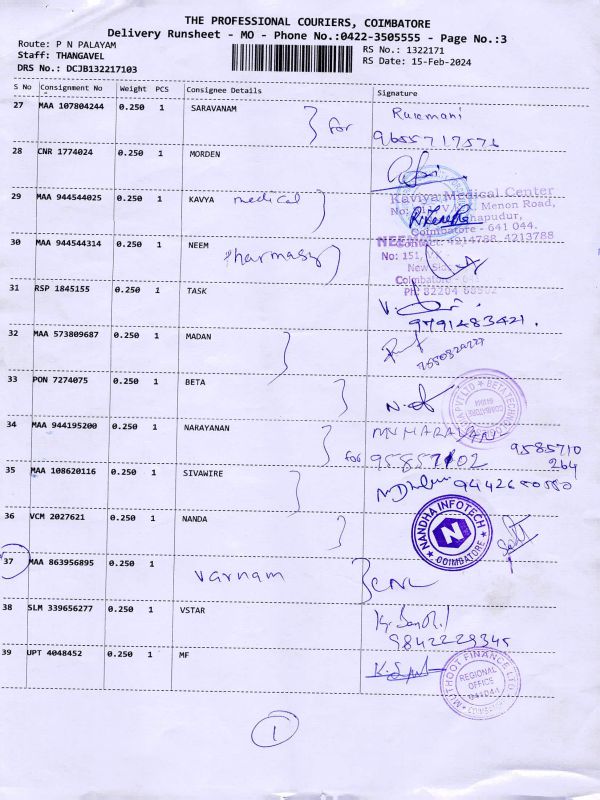 THE PROFESSIONAL COURIERS, COIMBATORE
Delivery Runsheet - MO - Phone No.:0422-3505555 - Page No.:3
Route: P N PALAYAM
Staff: THANGAVEL
DRS No.: DCJB132217103
RS No.: 1322171
RS Date: 15-Feb-2024
S No Consignment No Weight PCS Consignee Details Signature
27 MAA 107804244 0.250 1 SARAVANAM for
9655717571
28 CNR 1774024 0.250 1 MORDEN
29 MAA 944544025 0.250 1 KAVYA medical
Kaviya Medical Center
Menon Road,
Coimbatore - 641 044.
4214788, 4213788
30 MAA 944544314 0.250 1 NEEM Pharmasy
No: 151,
31 RSP 1845155 0.250 1 TASK
9791483421.
32 MAA 573809687 0.250 1 MADAN
33 PON 7274075 0.250 1 BETA
34 MAA 944195200 0.250 1 NARAYANAN for
9585710
264
35 MAA 108620116 0.250 1 SIVAWIRE
36 VCM 2027621 0.250 1 NANDA
NANDHA INFOTECH
COIMBATORE
37 MAA 863956895 0.250 1 varnam
38 SLM 339656277 0.250 1 VSTAR
9842229345
39 UPT 4048452 0.250 1 MF
MUTHOOT FINANCE LTD
REGIONAL
OFFICE
641044
1